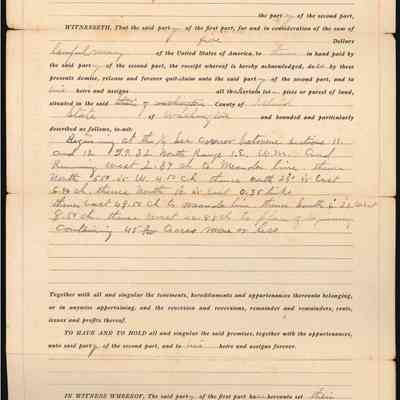 the party of the second part,
WITNESSETH, That the said party of the first part, for and in consideration of the sum of
five Dollars
Lawful money of the United States of America, to in hand paid by
the said party of the second part, the receipt whereof is hereby acknowledged, do by
these presents demise, release and forever quit-claim unto the said party of the second part, and to
his heirs and assigns all the certain lot piece or parcel of land,
situated in the said State of Washington County of Island
State of Washington and bounded and particularly
described as follows, to-wit:
Beginning at the 1/4 Sec corner between sections 11
and 12 T.P. 32 North Range 1 E. W.M. and
Running West 2.89 ch to Meander line thence
North W. 4.50 Ch thence north 23° East
ch thence North East 0.35 links
thence East 49.50 ch to meander line thence South West
8.50 ch thence West ch to place of beginning
Containing 45 acres more or less
Together with all and singular the tenements, hereditaments and appurtenances thereunto belonging,
or in anywise appertaining, and the reversion and reversions, remainder and remainders, rents,
issues and profits thereof.
TO HAVE AND TO HOLD all and singular the said premises, together with the appurtenances,
unto said party of the second part, and to his heirs and assigns forever.
IN WITNESS WHEREOF, The said party of the first part ha hereunto set their